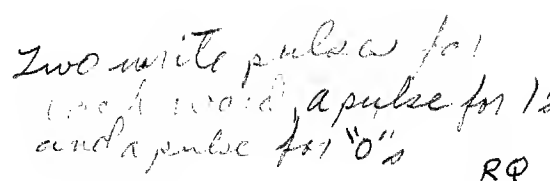 Two write pulses for
each word, a pulse for 1's
and a pulse for "0"s
RQ